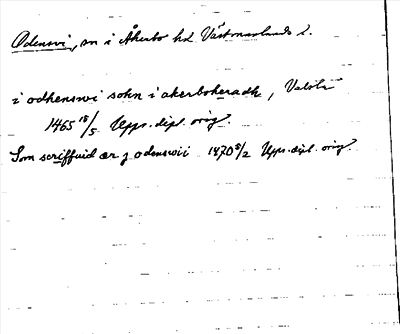 Odensvi, sn i Åkerbo hd Västmanlands l.
i odhenswi sokn i akerboheradh,
1465 18/5 Upps. dipl. orig.
Som scriffuid ær j odenswii 1470 8/2 Upps. dipl. orig.